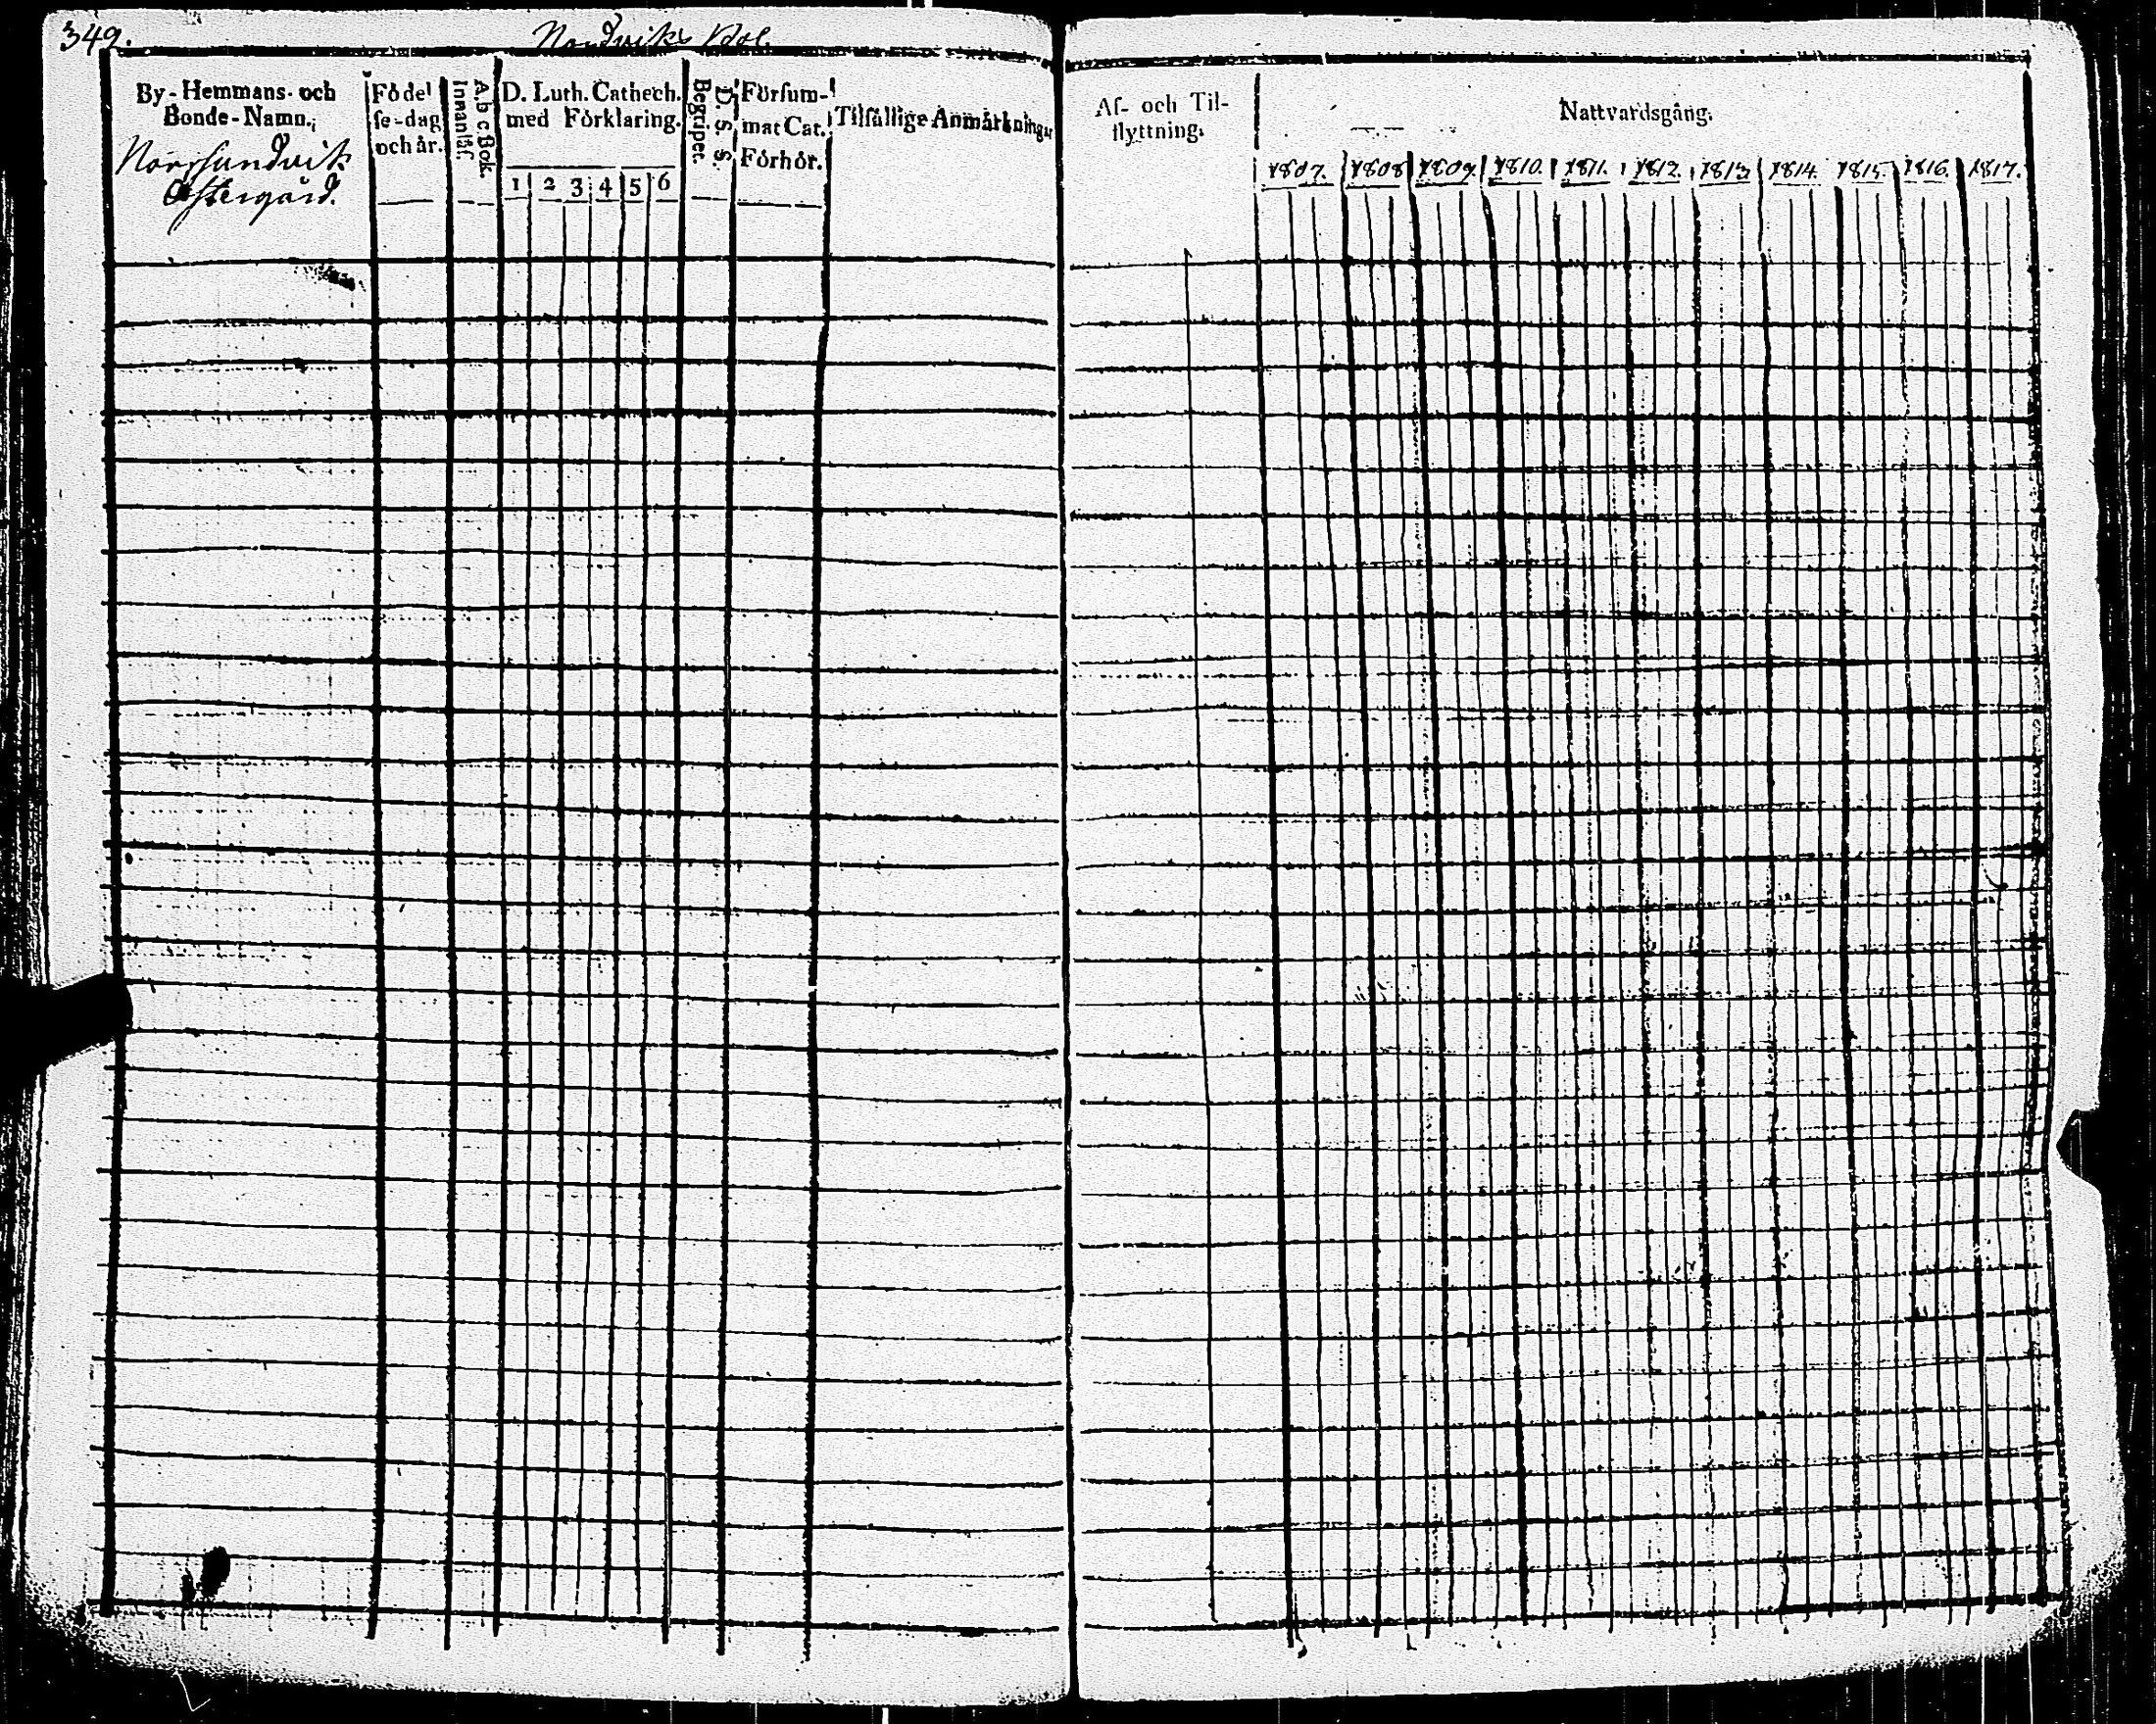 349.
Nordviks Rote.
By-Hemmans- och
Bonde-Namn.
Norrsundvik
Östergård.
Födel
se-dag
och år.
A, b c Bok.
Innanläs.
D. Luth. Cathech.
med Förklaring.
1 2 3 4 5 6
D. S. S.
Begriper.
Försum-
mat Cat.
Förhör.
Tilfällige Anmärkningar
Af- och Til-
flyttning.
Nattvardsgång.
1807. 1808 1809. 1810. 1811. 1812. 1813 1814. 1815. 1816. 1817.